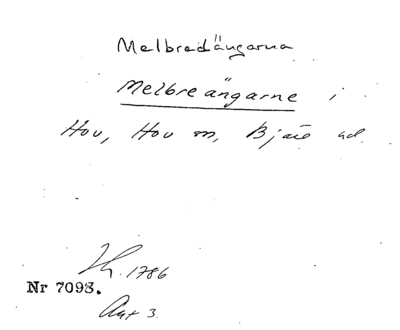 Melbredängarna
Melbreängarne i
Hov, Hov sn, Bjäre hd.
Lh. 1786
Nr 7093.
Akt 3.